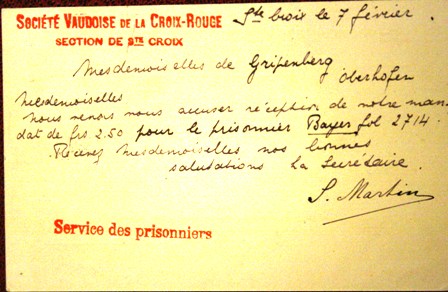 SOCIÉTÉ VAUDOISE DE LA CROIX-ROUGE
SECTION DE STE CROIX
Ste Croix le 7 février.
Mesdemoiselles de Gripenberg
Oberhofen
Mesdemoiselles
Nous venons vous accuser réception de votre man
dat de frs 2.50 pour le prisonnier Bayer fol 2714.
Recevez Mesdemoiselles nos bonnes
salutations La Secrétaire.
S. Martin
Service des prisonniers